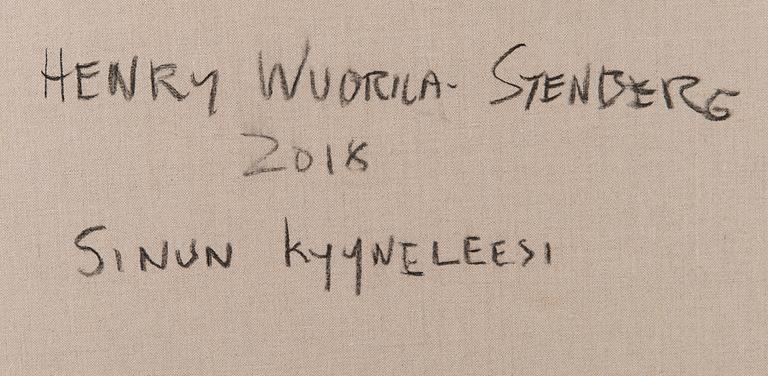 HENRY WUORILA-STENBERG
2018
SINUN KYYNELEESI